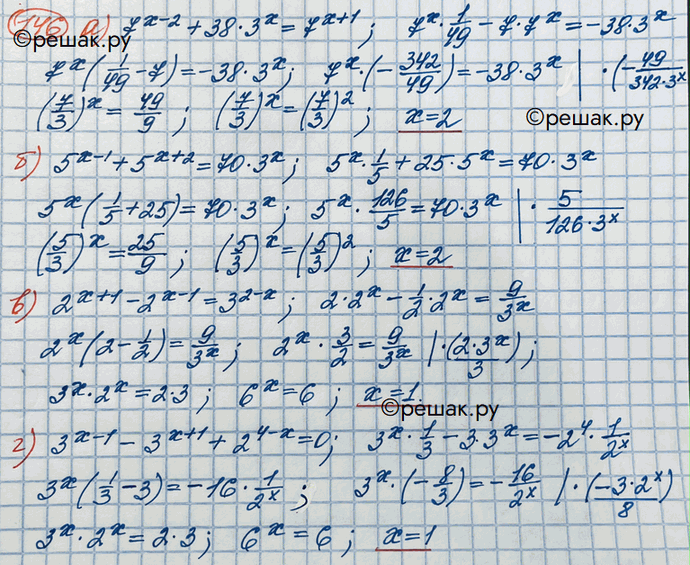 146 а) 7^(x-2) + 38·3^x = 7^(x+1); 7^x · 1/49 - 7·7^x = -38·3^x
©решак.ру
7^x (1/49 - 7) = -38·3^x; 7^x · (-342/49) = -38·3^x | · (-49/(342·3^x)
(7/3)^x = 49/9; (7/3)^x = (7/3)^2; x=2
©решак.ру
б) 5^(x-1) + 5^(x+2) = 70·3^x; 5^x · 1/5 + 25·5^x = 70·3^x
5^x (1/5 + 25) = 70·3^x; 5^x · 126/5 = 70·3^x | · 5/(126·3^x)
(5/3)^x = 25/9; (5/3)^x = (5/3)^2; x=2
в) 2^(x+1) - 2^(x-1) = 3^(2-x); 2·2^x - 1/2·2^x = 9/3^x
2^x (2 - 1/2) = 9/3^x; 2^x · 3/2 = 9/3^x | · (2·3^x)/3;
3^x · 2^x = 2·3; 6^x = 6; x=1.
©решак.ру
г) 3^(x-1) - 3^(x+1) + 2^(4-x) = 0; 3^x · 1/3 - 3·3^x = -2^4 · 1/2^x
3^x (1/3 - 3) = -16 · 1/2^x; 3^x · (-8/3) = -16/2^x | · (-3·2^x)/8
3^x · 2^x = 2·3; 6^x = 6; x=1